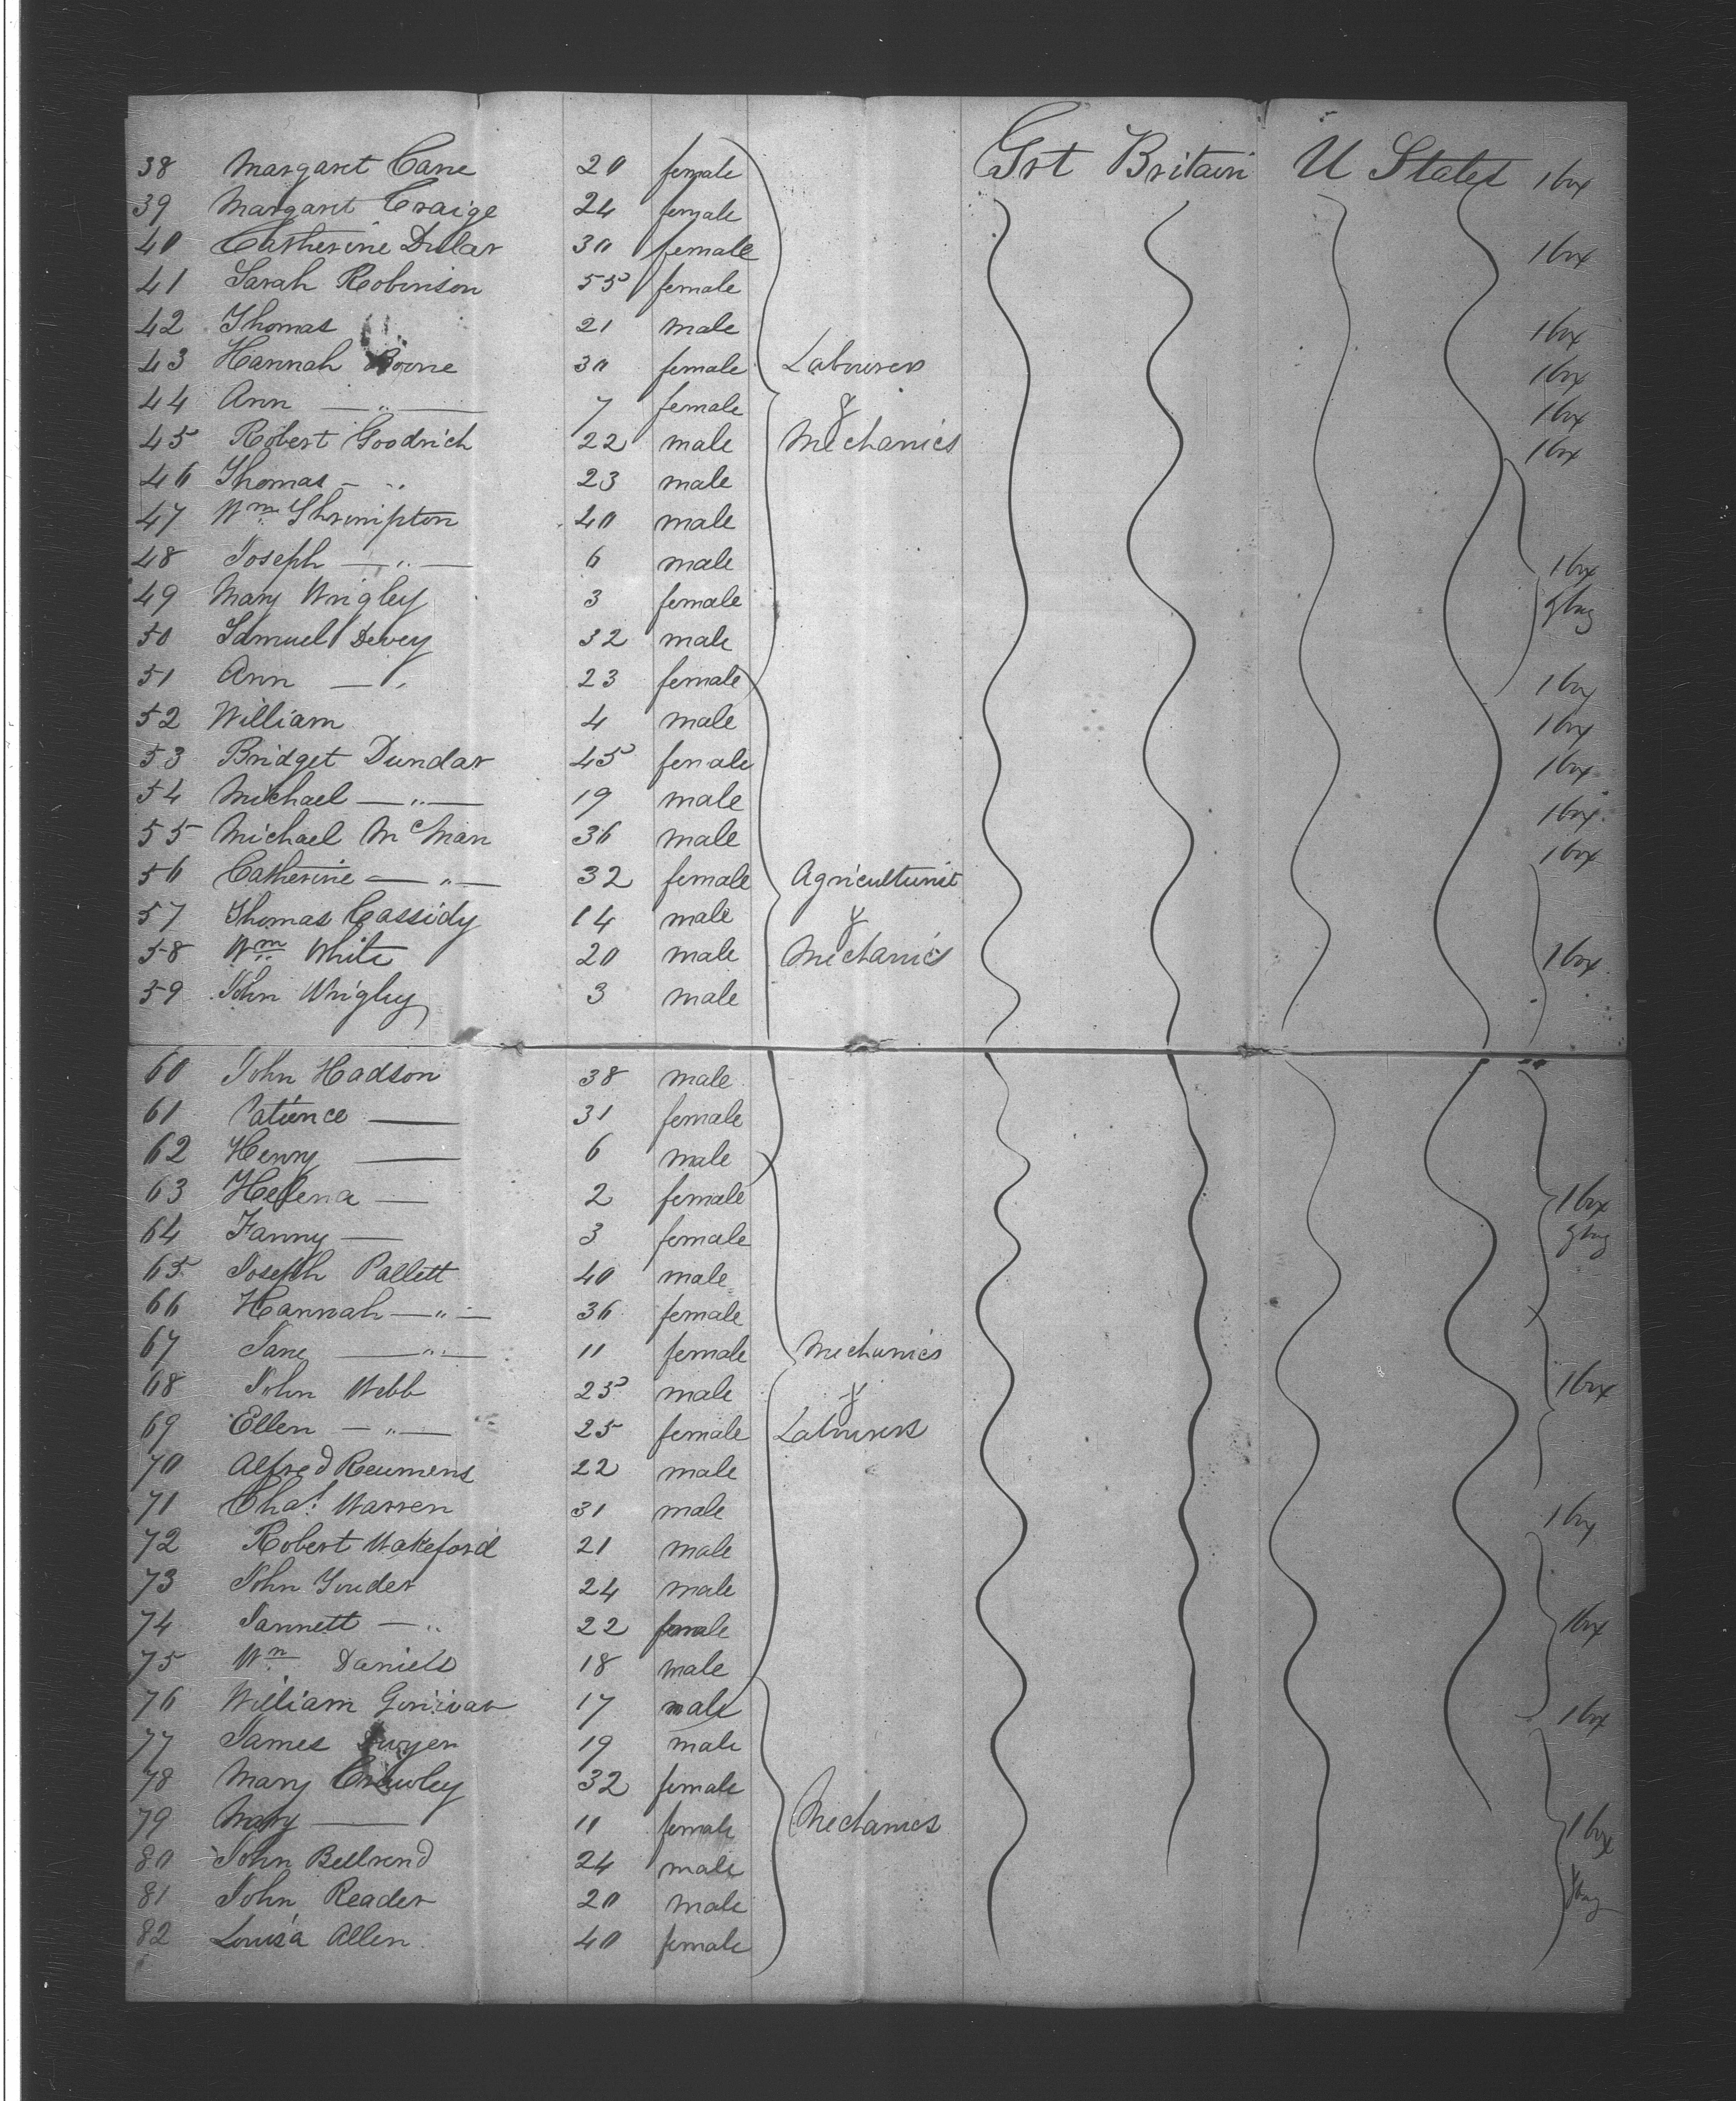 Grt Britain U States
38 Margaret Cane 20 female 1 box
39 Margaret Craige 24 female
40 Catherine Dular 30 female 1 box
41 Sarah Robinson 55 female
42 Thomas 21 male 1 box
43 Hannah 30 female Labourers 1 box
44 Ann — " — 7 female & 1 box
45 Robert Goodrich 22 male Mechanics 1 box
46 Thomas — " 23 male
47 Wm Shrimpton 40 male
48 Joseph — " — 6 male 1 box
49 Mary Wrigley 3 female & bag
50 Samuel Devey 32 male
51 Ann — " 23 female 1 box
52 William 4 male 1 box
53 Bridget Dundar 45 female 1 box
54 Michael — " — 19 male 1 box
55 Michael McMan 36 male 1 box
56 Catherine — " — 32 female Agriculturist
57 Thomas Cassidy 14 male &
58 Wm White 20 male Mechanics 1 box
59 John Wrigley 3 male
60 John Hadson 38 male
61 Patience — 31 female
62 Henry — 6 male
63 Helena — 2 female 1 box
64 Fanny — 3 female & bag
65 Joseph Pallett 40 male
66 Hannah — " — 36 female
67 Jane — " — 11 female Mechanics
68 John Webb 25 male & 1 box
69 Ellen — " — 25 female Labourers
70 Alfred Reumens 22 male
71 Chas. Warren 31 male 1 box
72 Robert Wakeford 21 male
73 John 24 male
74 Jannett — " 22 female 1 box
75 Wm Daniels 18 male
76 William 17 male 1 box
77 James Dwyer 19 male
78 Mary Crowley 32 female
79 Mary — 11 female Mechanics 1 box
80 John Bellrend 24 male
81 John Reader 20 male & bag
82 Louisa Allen 40 female